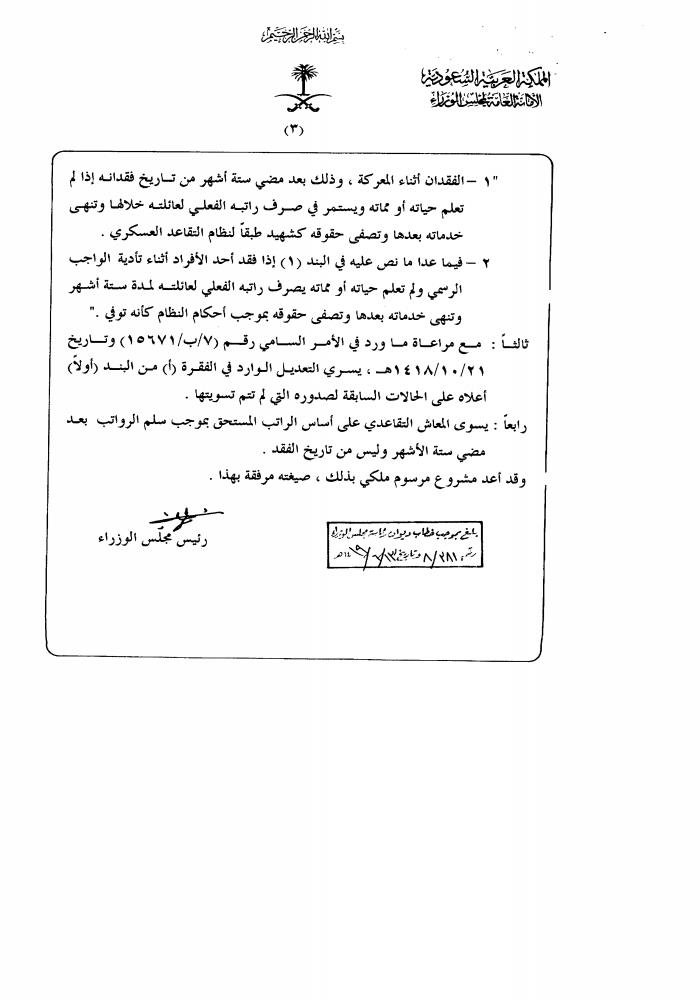 بسم الله الرحمن الرحيم
المملكة العربية السعودية
الأمانة العامة لمجلس الوزراء
(٣)
"١ – الفقدان أثناء المعركة ، وذلك بعد مضي ستة أشهر من تاريخ فقدانه إذا لم
تعلم حياته أو مماته ويستمر في صرف راتبه الفعلي لعائلته خلالها وتنهى
خدماته بعدها وتصفى حقوقه كشهيد طبقاً لنظام التقاعد العسكري .
٢ – فيما عدا ما نص عليه في البند (١) إذا فقد أحد الأفراد أثناء تأدية الواجب
الرسمي ولم تعلم حياته أو مماته يصرف راتبه الفعلي لعائلته لمدة ستة أشهر
وتنهى خدماته بعدها وتصفى حقوقه بموجب أحكام النظام كأنه توفي ."
ثالثاً : مع مراعاة ما ورد في الأمر السامي رقم (٧/ب/١٥٦٧١) وتاريخ
١٤١٨/١٠/٢١هـ ، يسري التعديل الوارد في الفقرة (أ) من البند (أولاً)
أعلاه على الحالات السابقة لصدوره التي لم تتم تسويتها .
رابعاً : يسوى المعاش التقاعدي على أساس الراتب المستحق بموجب سلم الرواتب بعد
مضي ستة الأشهر وليس من تاريخ الفقد .
وقد أعد مشروع مرسوم ملكي بذلك ، صيغته مرفقة بهذا .
رئيس مجلس الوزراء
بلغ بموجب خطاب ديوان رئاسة مجلس الوزراء